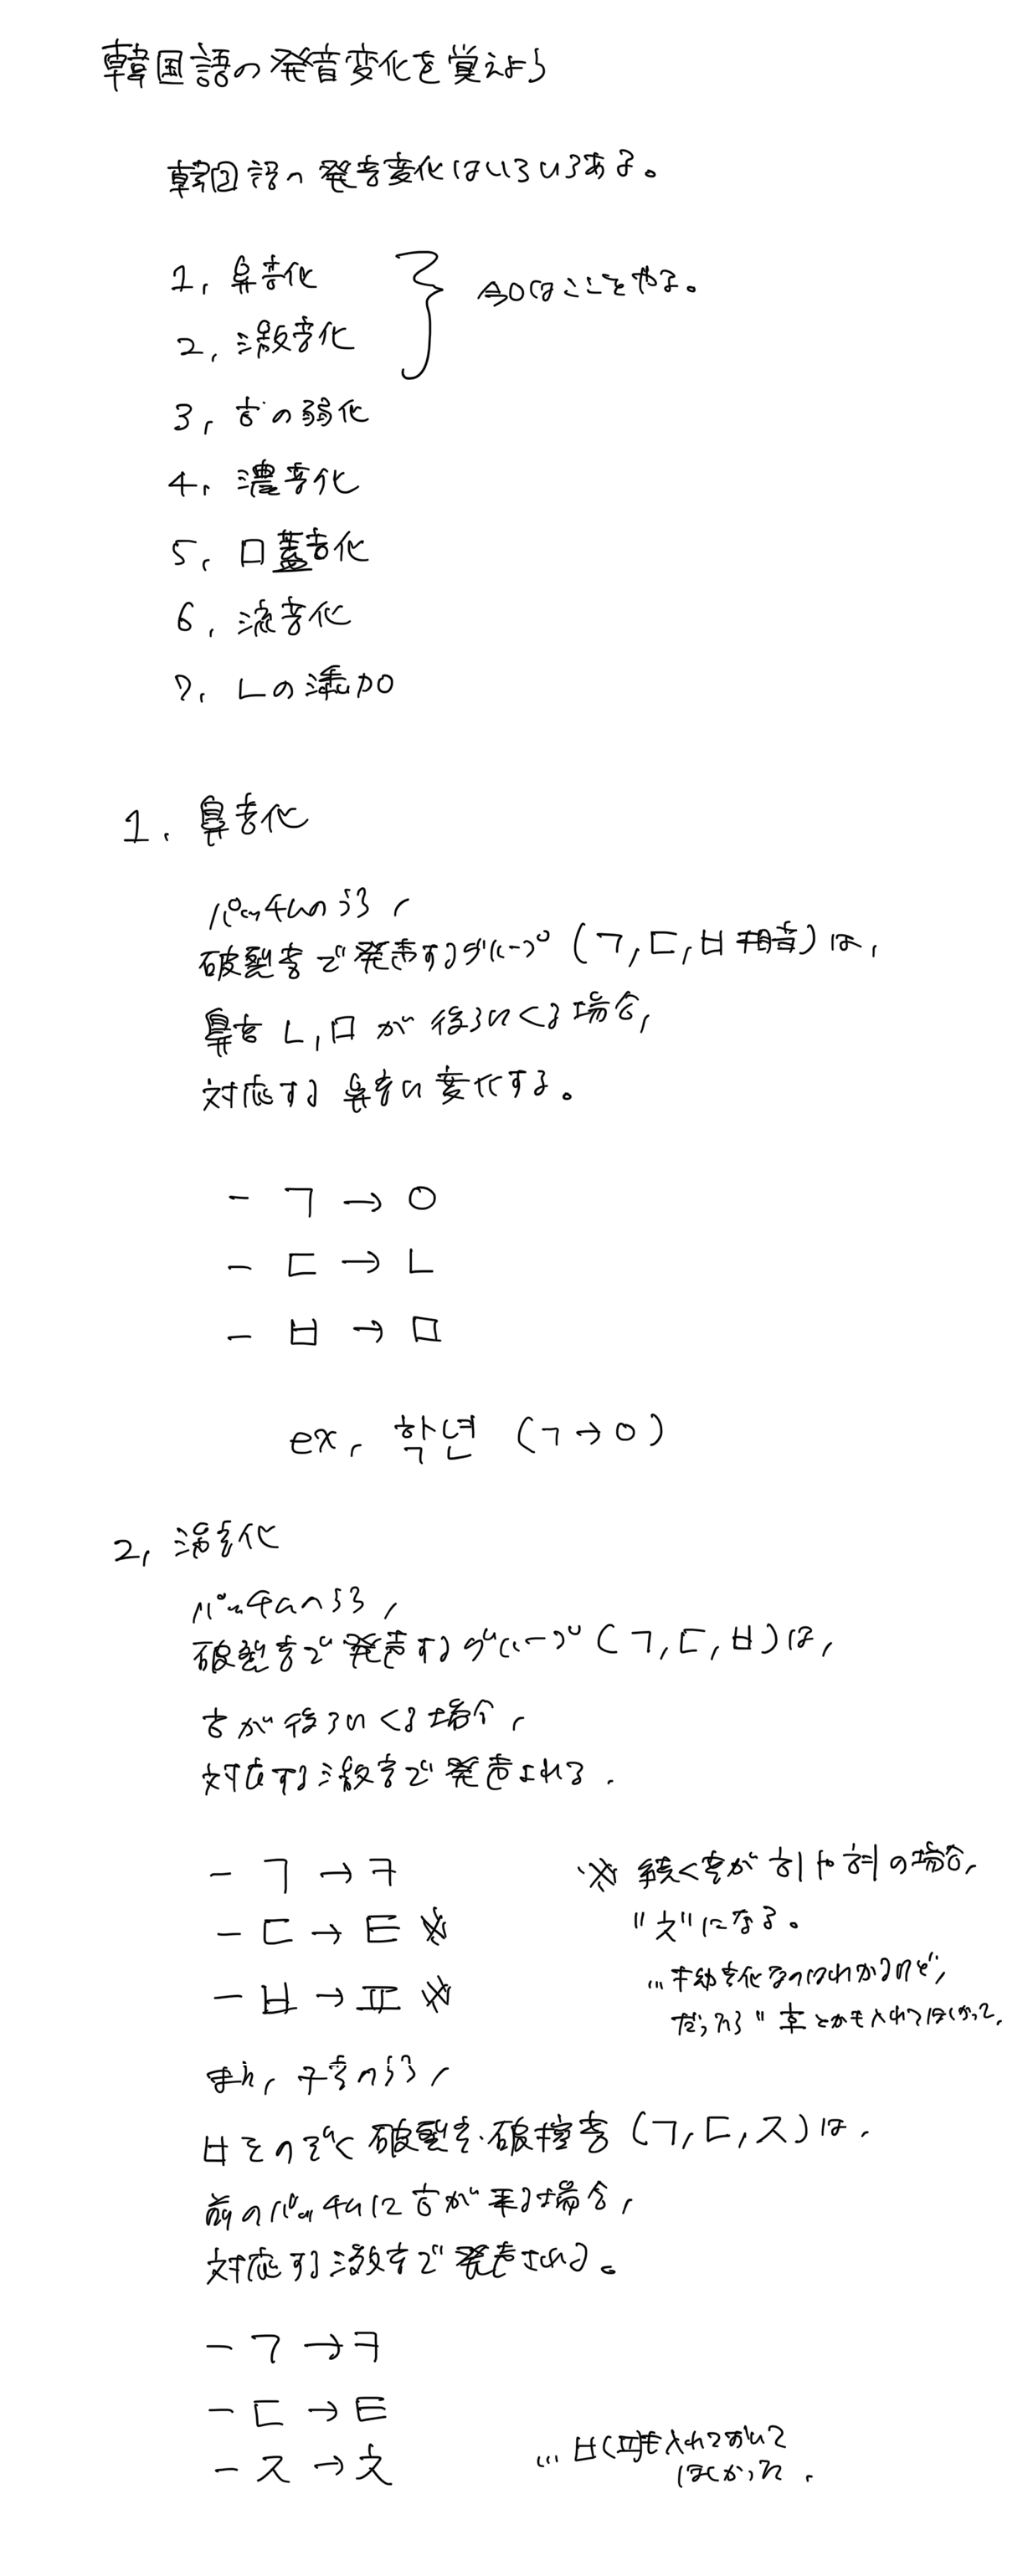 韓国語の発音変化を覚えよう
韓国語の発音変化はいろいろある。
1, 鼻音化
2, 激音化
今日はここをやる。
3, ㅎの弱化
4, 濃音化
5, 口蓋音化
6, 流音化
7, ㄴの添加
1. 鼻音化
パッチムのうち,
破裂音で発声するグループ (ㄱ, ㄷ, ㅂ 相音) は,
鼻音 ㄴ, ㅁ が 後ろにくる場合,
対応する 鼻音に変化する。
- ㄱ → ㅇ
- ㄷ → ㄴ
- ㅂ → ㅁ
ex, 학년 (ㄱ→ㅇ)
2, 激音化
パッチムのうち,
破裂音で発声するグループ (ㄱ, ㄷ, ㅂ) は,
ㅎが後ろにくる場合,
対応する激音で発声される.
- ㄱ → ㅋ
- ㄷ → ㅌ ※
- ㅂ → ㅍ ※
※ 続く音が 히や혀の場合,
"ㅊ"になる。
... 口蓋音化なのはわかるけど,
だったら" とかも入れてほしかった.
また, 子音のうち,
ㅂをのぞく 破裂音・破擦音 (ㄱ, ㄷ, ㅈ) は,
前のパッチムにㅎが来る場合,
対応する激音で発声される。
- ㄱ → ㅋ
- ㄷ → ㅌ
- ㅈ → ㅊ
... ㅂ(ㅍ)も入れておいて
ほしかった.